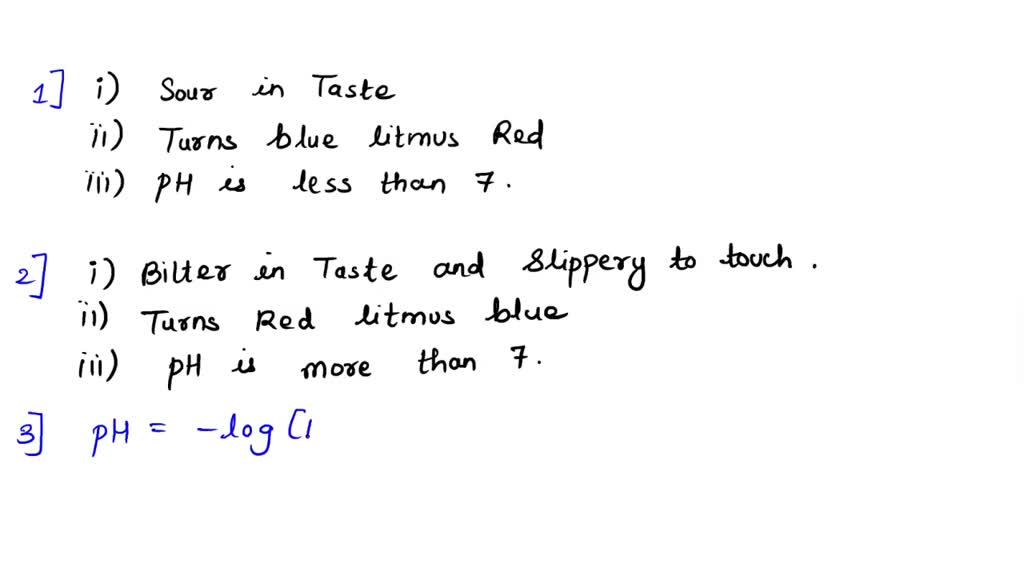 1] i) Sour in Taste
ii) Turns blue litmus Red
iii) pH is less than 7.
2] i) Bitter in Taste and Slippery to touch.
ii) Turns Red litmus blue
iii) pH is more than 7.
3] pH = -log [